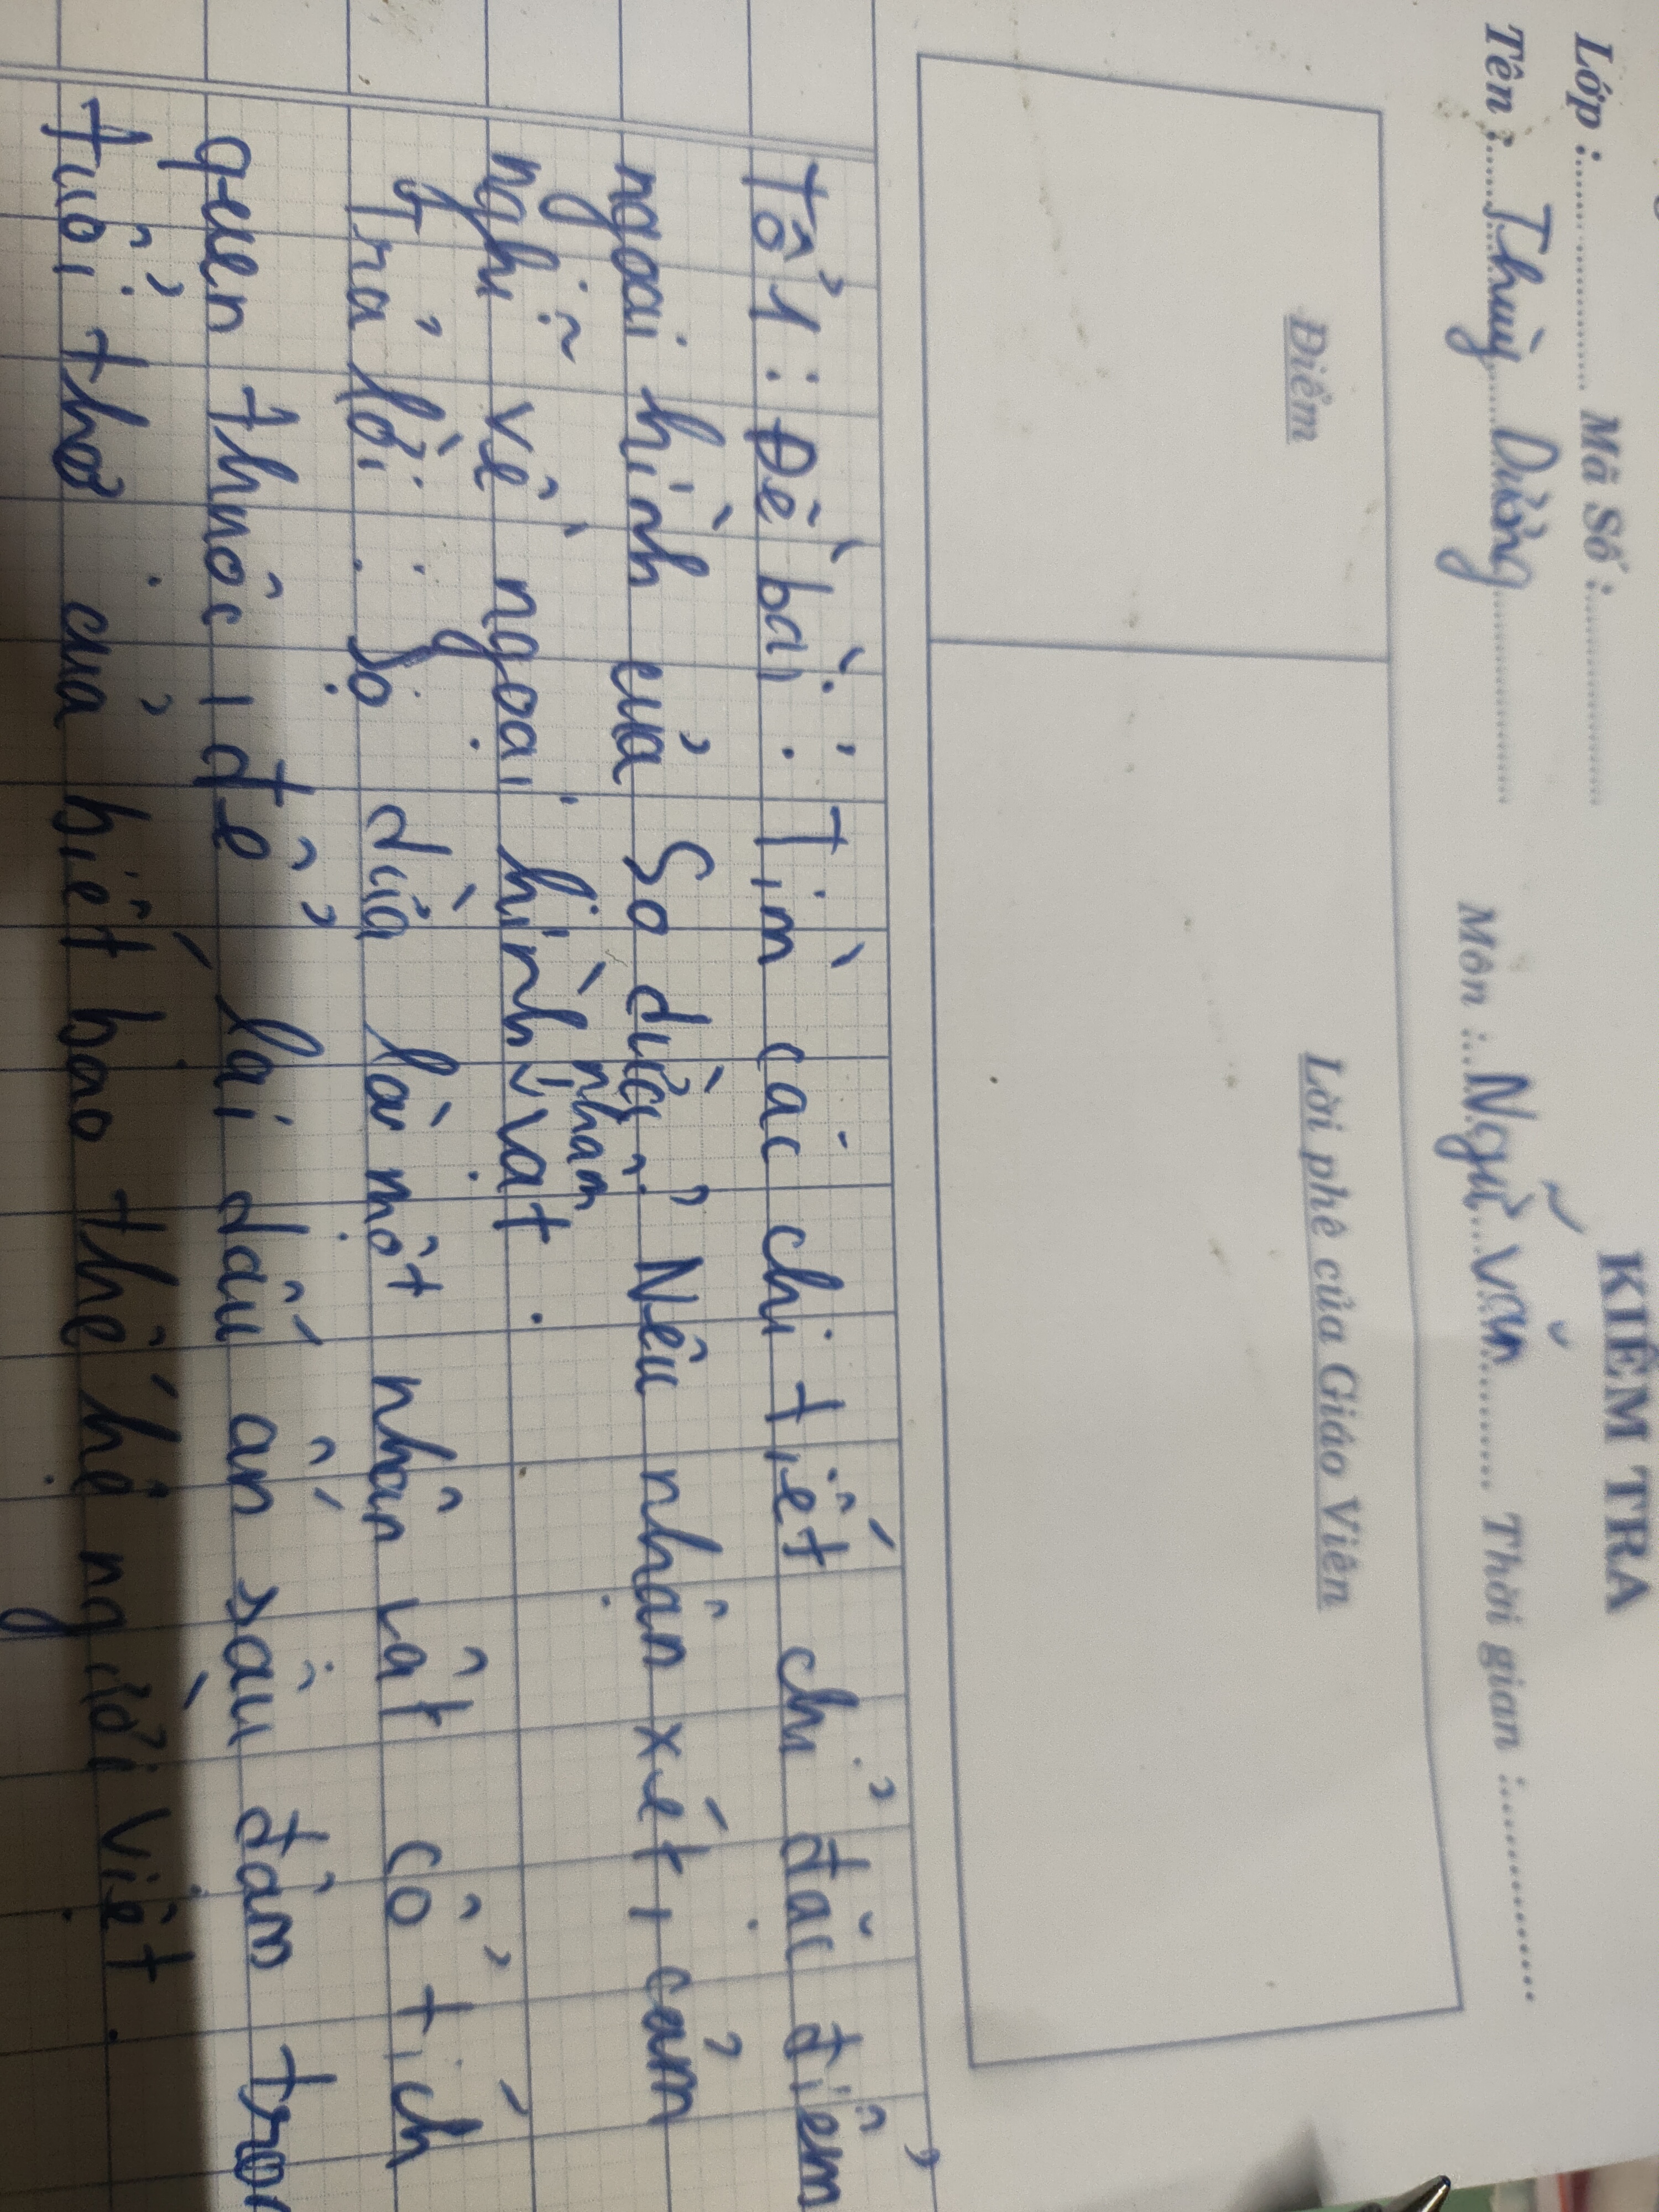 KIỂM TRA
Lớp : Mã Số :
Tên : Thùy Dương Môn : Ngữ văn Thời gian :
Điểm Lời phê của Giáo Viên
Tổ 1 : Đề bài : Tìm các chi tiết chỉ đặc điểm
ngoại hình của Sọ dừa ? Nêu nhận xét, cảm
nghĩ về ngoại hình nhân vật.
Trả lời : Sọ dừa là một nhân vật cổ tích
quen thuộc, để lại dấu ấn sâu đậm
tuổi thơ của biết bao thế hệ người Việt.